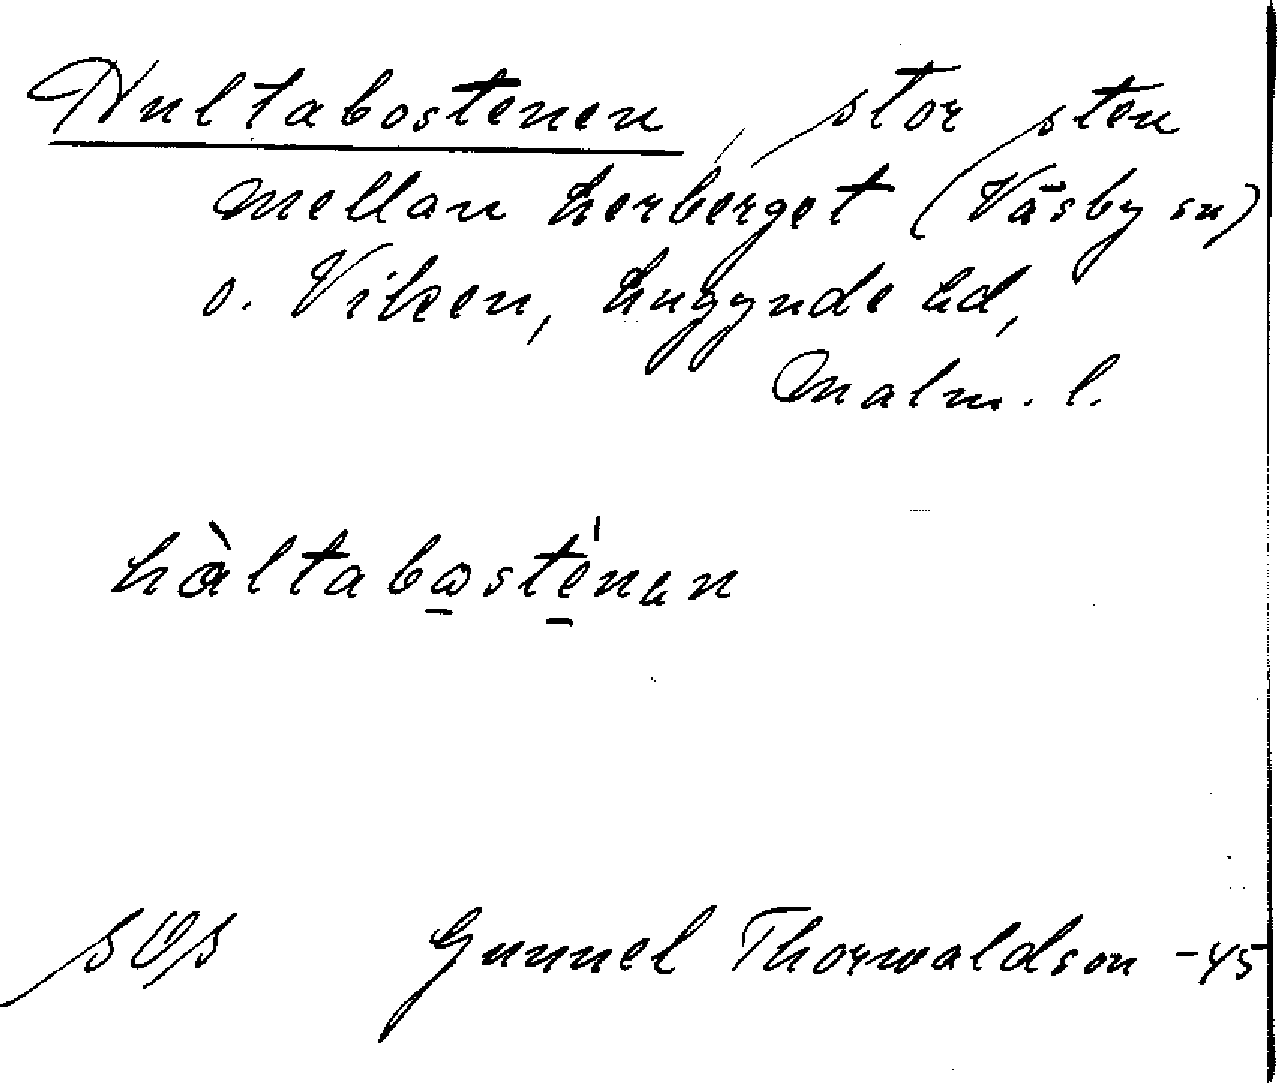 Hultabostenen, stor sten
mellan Lerberget (Väsby sn)
o. Viken, Luggunde hd,
Malm. l.
hàltabo̲ste̲nen
SOS Gunnel Thorwaldson -45